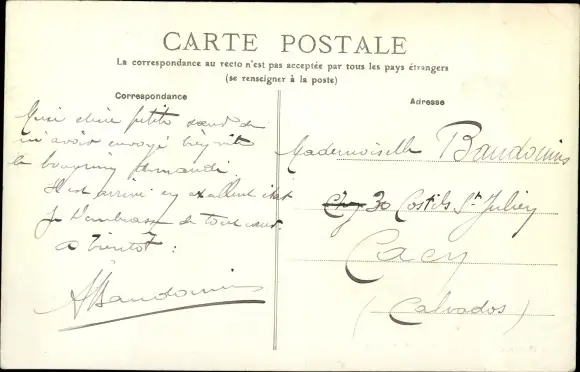 CARTE POSTALE
La correspondance au recto n'est pas acceptée par tous les pays étrangers
(se renseigner à la poste)
Correspondance
Merci chère petite sœur de
m'avoir envoyé très vite
le demandé.
Il est arrivé en excellent état
Je t'embrasse de tout cœur.
A bientôt :
ABaudouin
Adresse
Mademoiselle Baudouin
Chez 30 Costils St Julien
Caen
(Calvados)